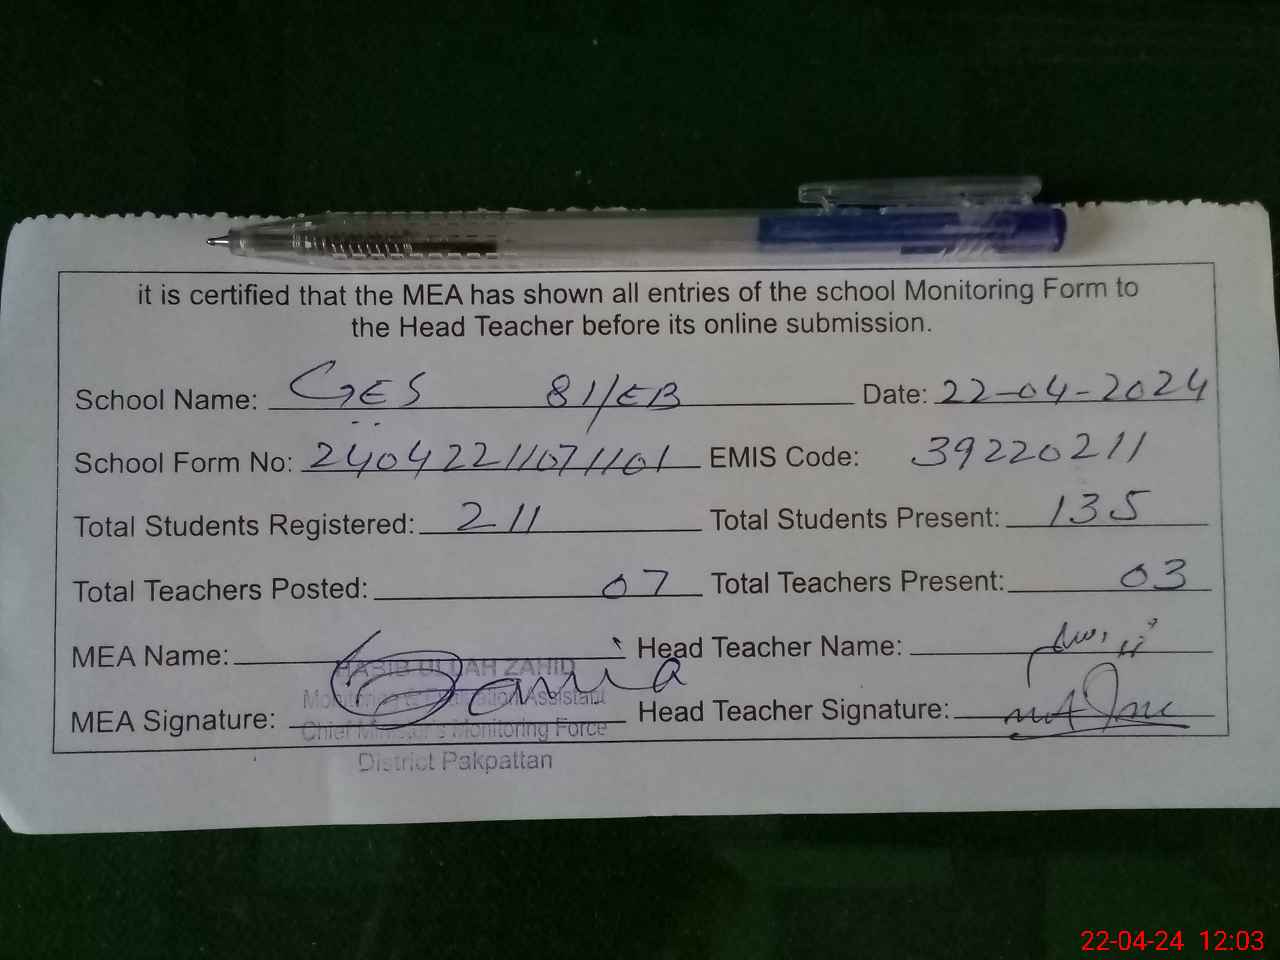 it is certified that the MEA has shown all entries of the school Monitoring Form to
the Head Teacher before its online submission.
School Name: GES 81/EB Date: 22-04-2024
School Form No: 24042211071101 EMIS Code: 39220211
Total Students Registered: 211 Total Students Present: 135
Total Teachers Posted: 07 Total Teachers Present: 03
MEA Name: Head Teacher Name:
HABIB ULLAH ZAHID
Monitoring & Evaluation Assistant
MEA Signature: Head Teacher Signature:
Chief Minister's Monitoring Force
District Pakpattan
22-04-24 12:03